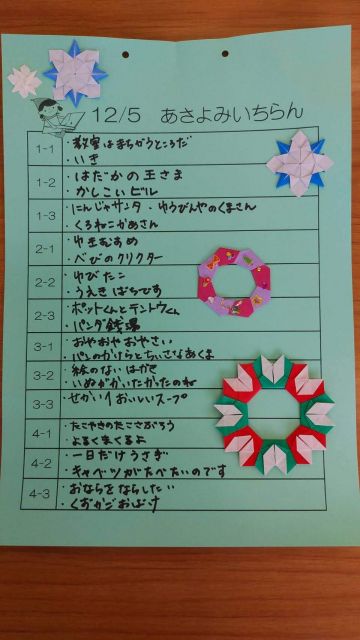 12/5 あさよみいちらん
1-1 ・教室はまちがうところだ
・いき
1-2 ・はだかの王さま
・かしこいビル
1-3 ・にんじゃサンタ ・ゆうびんやのくまさん
・くろねこかあさん
2-1 ・ゆきむすめ
・へびのクリクター
2-2 ・ゆびたこ
・うえきばちです
2-3 ・ポットくんとテントウくん
・パンダ銭湯
3-1 ・おやおやおやさい
・パンのかけらとちいさなあくま
3-2 ・絵のないはがき
・いぬがかいたかったのね
3-3 ・せかい1おいしいスープ
4-1 ・たこやきのたこさぶろう
・よるくまくるよ
4-2 ・一日だけうさぎ
・キャベツがたべたいのです
4-3 ・おならをならしたい
・くずかごおばけ